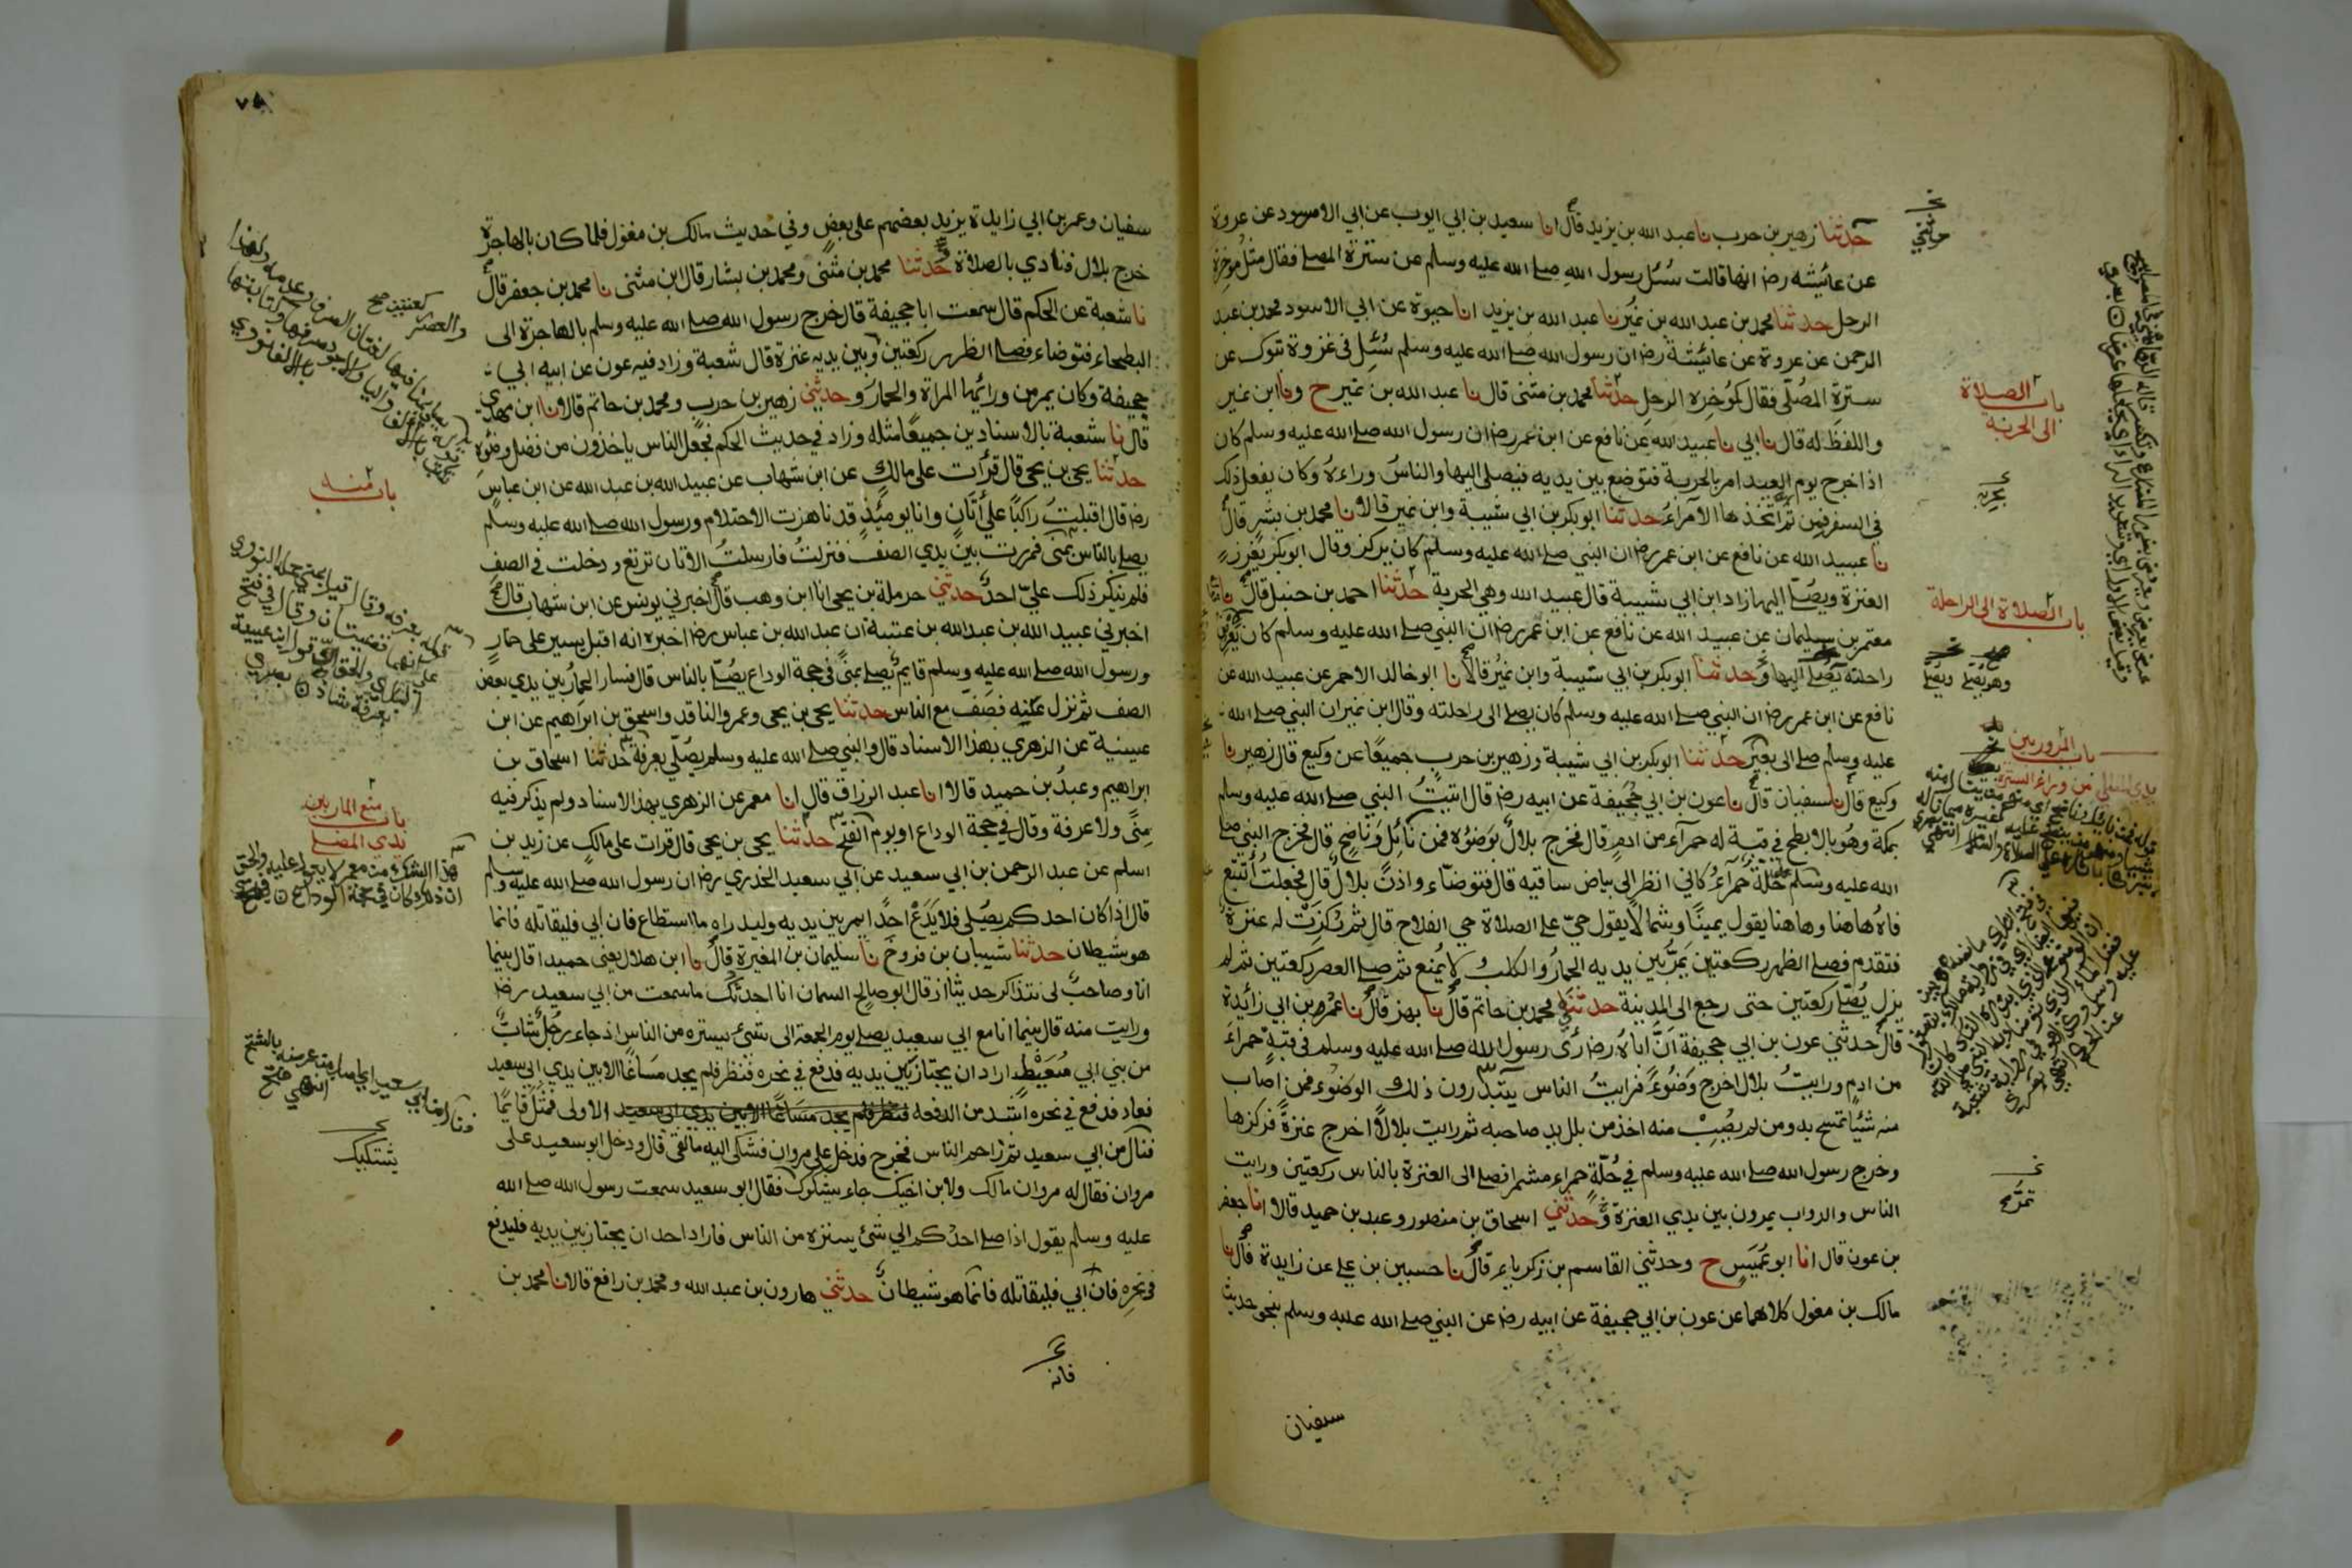 حدثنا زهير بن حرب نا عبد الله بن يزيد قال انا سعيد بن ابي ايوب عن ابي الاسود عن عروة
عن عائيشه رضه انها قالت سُئل رسول الله صلے الله عليه وسلم عن سترة المصلے فقال مثل مؤخرة
الرحل حدثنا محمد بن عبد الله بن نمير نا عبد الله بن يزيد انا حيوة عن ابي الاسود محمد بن عبد
الرحمن عن عروة عن عائيشة رضه ان رسول الله صلے الله عليه وسلم سُئِل في غزوة تبوك عن
سترة المصلّى فقال كمؤخره الرحل حدثنا محمد بن مثنى قال نا عبد الله بن نمير ح ونا ابن نمير
واللفظ له قال نا ابي نا عبيد الله عن نافع عن ابن عمر رضه ان رسول الله صلے الله عليه وسلم كان
اذا خرج يوم العيد امر بالحربة فتوضع بين يديه فيصلي اليها والناسُ وراءهُ وكان يفعل ذلك
في السفر فمن ثم اتخذها الأمراءُ حدثنا ابو بكر بن ابي شيبة وابن نمير قالا نا محمد بن بشر قال
نا عبيد الله عن نافع عن ابن عمر رضه ان النبي صلے الله عليه وسلم كان يركز وقال ابو بكر يغرز
العنزة ويصلّے اليها زاد ابن ابي شيبة قال عبيد الله وهي الحربة حدثنا احمد بن حنبل قال نا
معتمر بن سليمان عن عبيد الله عن نافع عن ابن عمر رضه ان النبي صلے الله عليه وسلم كان يعرض
راحلته يصلے اليها وحدثنا ابو بكر بن ابي شيبة وابن نمير قالا نا ابو خالد الاحمر عن عبيد الله عن
نافع عن ابن عمر رضه ان النبي صلے الله عليه وسلم كان يصلے الى راحلته وقال ابن نمير ان النبي صلے الله
عليه وسلم صلے الى بعير حدثنا ابو بكر بن ابي شيبة وزهير بن حرب جميعًا عن وكيع قال زهير نا
وكيع قال نا سفيان قال نا عون بن ابي جُحَيفة عن ابيه رضه قال اتيتُ النبي صلے الله عليه وسلم
بمكة وهُو بالابطح في قبة له حمرآء من ادمٍ قال فخرج بلالٌ بوَضوئه فمن نَائِلٍ وَنَاضِحٍ قال فخرج النبي صلے
الله عليه وسلم عليه حُلّة حمرآءُ كاني انظر الى بياض ساقيه قال فتوضّاء واذنّ بلالٌ قال فجعلت أتتبع
فاهُ هاهنا وهاهنا يقول يمينًا وشمالًا يقول حيّ على الصلاة حي الفلاح قال ثم رُكِزَتْ له عنزة
فتقدم فصلے الظهر ركعتين يَمرُّ بين يديه الحمارُ والكلب لا يُمنع ثم صلے العصر ركعتين ثم لم
يزل يُصلّي ركعتين حتى رجع الى المدينة حدثني محمد بن حاتم قال نا بهز قال نا عمر بن ابي زائدة
قال حدثني عون بن ابي جحيفة اَنَّ اباهُ رضه رأى رسول الله صلے الله عليه وسلم في قبةٍ حمراءَ
من ادمٍ ورايتُ بلالا اخرج وَضُوءً فرايتُ الناس يبتدرون ذلك الوضوءَ فمن اصاب
منه شئيًا تمسح به ومن لم يصُبْ منه اخذ من بلل يد صاحبه ثم رايت بلالًا اخرج عنزةً فركزها
وخرج رسول الله صلے الله عليه وسلم في حُلّةٍ حمراء مشمرا فصلے الى العنزة بالناس ركعتين ورايت
الناس والدواب يمرون بين يدي العنزة وحدثني اسحاق بن منصور وعبد بن حميد قالا انا جعفر
بن عون قال انا ابو عُمَيسٍ ح وحدثني القاسم بن زكرياء قال نا حسين بن علے عن زايدة قال نا
مالك بن مغول كلاهما عن عون بن ابي جحيفة عن ابيه رضه عن النبي صلے الله عليه وسلم بنحو حديث
سفيان
حدثني
باب الصلاة
الى الحربة
باب الصلاة الى الراحلة
وهو يصلے ويصلّے
باب المرور بين
يدي المصلي من وراء السترة
تمسّح
سفيان وعمر بن ابي زايدة يزيد بعضهم على بعض وفي حديث مالك بن مغول فلما كان بالهاجرة
خرج بلال فنادي بالصلاة حدثنا محمد بن مثنى ومحمد بن بشار قال ابن مثنى نا محمد بن جعفر قال
نا شعبة عن الحكم قال سمعت ابا جحيفة قال خرج رسول الله صلے الله عليه وسلم بالهاجرة الى
البطحاء فتوضاء فصلے الظهر ركعتين وبين يديه عنزة قال شعبة وزاد فيه عون عن ابيه ابي
جحيفة وكان يمر من ورائها المراة والحمارُ وحدثني زهير بن حرب ومحمد بن حاتم قالا نا ابن مهدي
قال نا شعبة بالاسنادين جميعًا مثله وزاد في حديث الحكم فجعل الناس ياخذون من فضل وضوئه
حدثنا يحيى بن يحيى قال قرأت على مالك عن ابن شهاب عن عبيد الله بن عبد الله عن ابن عباس
رضه قال اقبلتُ راكبًا على أتَانٍ وانا يومئذٍ قد ناهزت الاحتلام ورسول الله صلے الله عليه وسلم
يصلے بالناس بمنى فمررت بين يدي الصف فنزلتُ فارسلتُ الاتان ترتع ودخلت في الصف
فلم ينكر ذلك عليّ احدٌ حدثني حرملة بن يحيى انا ابن وهب قال اخبرني يونس عن ابن شهاب قال
اخبرني عبيد الله بن عبد الله بن عتبة ان عبد الله بن عباس رضه اخبره انه اقبل يسير على حمارٍ
ورسول الله صلے الله عليه وسلم قايم يصلے بمنى في حجة الوداع يُصلّے بالناس قال فسار الحمارُ بين يدي بعض
الصف ثم نزل عنه فصَف مع الناس حدثنا يحيى بن يحيى وعمرو الناقد واسحق بن ابراهيم عن ابن
عيينة عن الزهري بهذا الاسناد قال والنبي صلے الله عليه وسلم يصُلّي بعرفة حدثنا اسحاق بن
ابراهيم وعبدُ بن حميد قالا انا عبد الرزاق قال انا معمر عن الزهري بهذا الاسناد ولم يذكر فيه
مِنًى ولا عرفة وقال في حجة الوداع او يوم الفتح حدثنا يحيى بن يحيى قال قرات على مالكٍ عن زيد بن
اسلم عن عبد الرحمن بن ابي سعيد عن ابي سعيد الخدري رضه ان رسول الله صلے الله عليه وسلم
قال اذا كان احدكم يصُلي فلا يَدَعْ احدًا يمر بين يديه وليدراه ما استطاع فان أبي فليقاتله فانما
هو شيطان حدثنا شيبان بن فروخ نا سليمان بن المغيرة قال نا ابن هلال يعني حميدا قال بينما
انا وصاحبٌ لى نتذاكر حديثا اذ قال ابو صالح السمان انا احدثك ما سمعت من ابي سعيد رضه
ورايت منه قال بينما انا مع ابي سعيد يصلے يوم الجمعة الى شئ يستره من الناس اذ جاء رجُل شابٌّ
من بني ابي مُعَيْط اراد ان يجتاز بين يديه فدفع في نحره فنظر فلم يجد مسَاغًا الا بين يدي ابي سعيد
فعاد فدفع في نحره اشد من الدفعه فنظر فلم يجد مسَاغًا الا بين يدي ابي سعيد الاولى فمثُل قايمًا
فنال من ابي سعيد ثم زاحم الناس فخرج فدخل على مروان فشكى اليه ما لقى قال ودخل ابو سعيد على
مروان فقال له مروان مالك ولابن اخيك جاء يشكوك فقال ابو سعيد سمعت رسول الله صلے الله
عليه وسلم يقول اذا صلے احدُكم الي شئ يستره من الناس فاراد احد ان يجتاز بين يديه فليدفع
في نحره فان ابي فليقاتله فانما هو شيطانٌ حدثني هارون بن عبد الله ومحمد بن رافع قالا نا محمد بن
فانه
باب منه
باب منع المار بين
يدي المصلے
يشتكيك